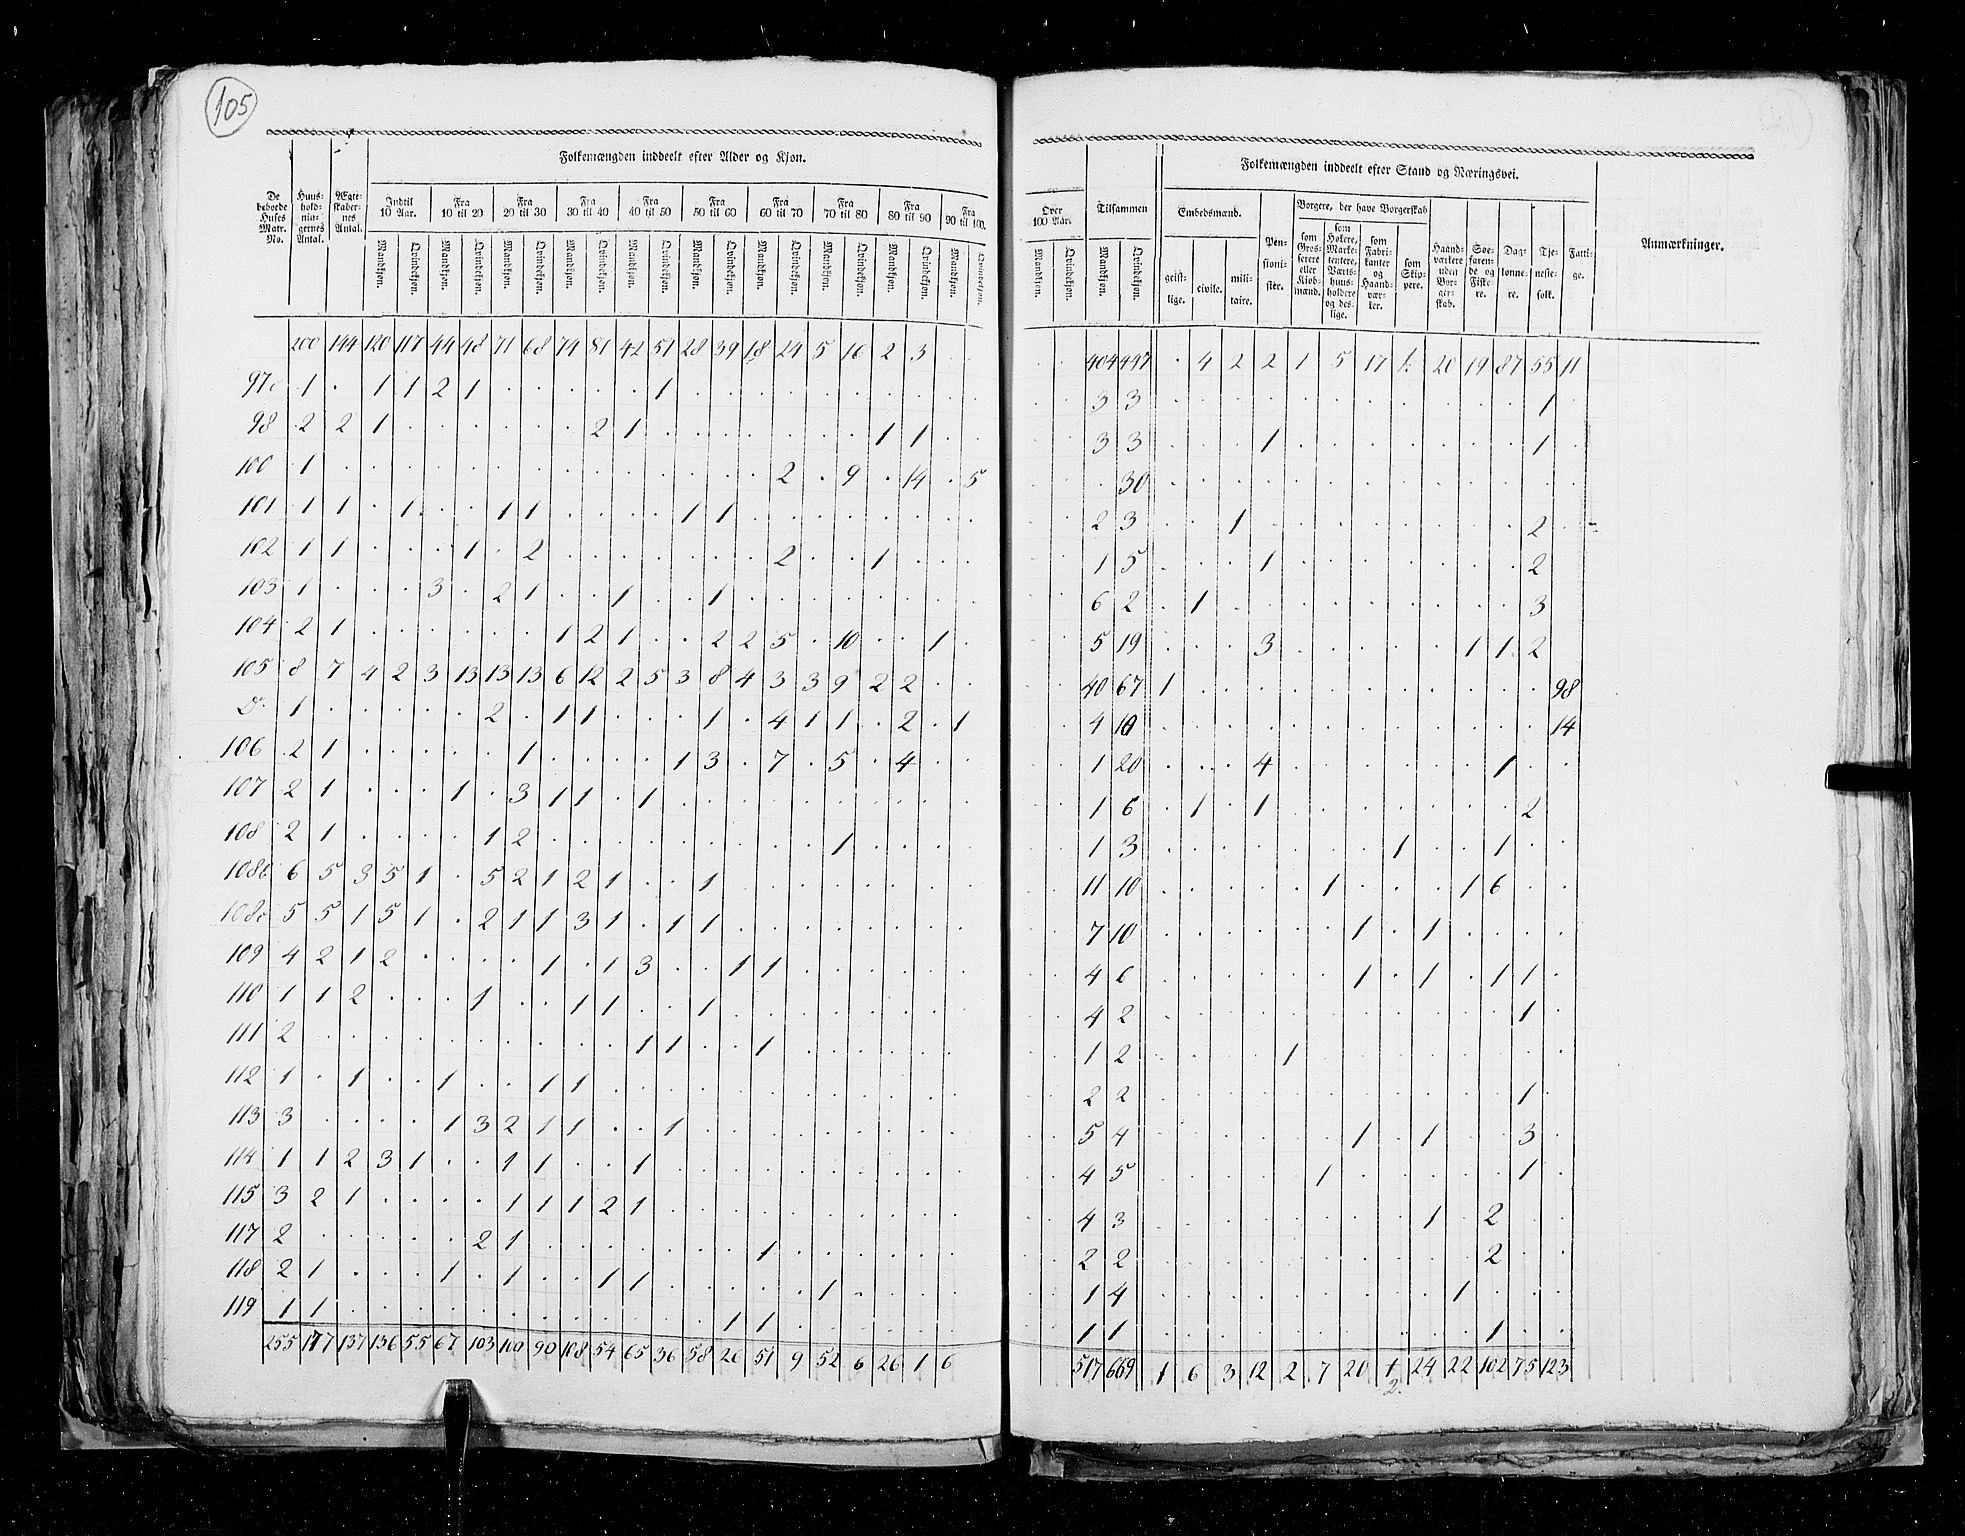 105
Folkemængden inddeelt efter Alder og Kjøn.
De beboede Huses Matr. No. | Huus-hold-nin-gernes Antal. | Ægte-skaber-nes Antal. | Indtil 10 Aar. | Fra 10 til 20 | Fra 20 til 30 | Fra 30 til 40 | Fra 40 til 50 | Fra 50 til 60 | Fra 60 til 70 | Fra 70 til 80 | Fra 80 til 90 | Fra 90 til 100.
Mandkjøn. Qvindekjøn. Mandkjøn. Qvindekjøn. Mandkjøn. Qvindekjøn. Mandkjøn. Qvindekjøn. Mandkjøn. Qvindekjøn. Mandkjøn. Qvindekjøn. Mandkjøn. Qvindekjøn. Mandkjøn. Qvindekjøn. Mandkjøn. Qvindekjøn. Mandkjøn. Qvindekjøn.
200 144 120 117 44 48 71 68 74 81 42 51 28 39 18 24 5 16 2 3
97c 1 . 1 1 2 1 . . . . . 1 . . . . . . . . . .
98 2 2 1 . . . . . . 2 1 . . . . . . . 1 1 . .
100 1 . . . . . . . . . . . . . . 2 . 9 . 14 . 5
101 1 1 . 1 . . 1 1 . . . . 1 1 . . . . . . . .
102 1 1 . . . 1 . 2 . . . . . . . 2 . . 1 . . .
103 1 . . . 3 . 2 1 . . 1 . . 1 . . . . . . . .
104 2 1 . . . . . . 1 2 1 . . 2 2 5 . 10 . . 1 .
105 8 7 4 2 3 13 13 13 6 12 2 5 3 8 4 3 3 9 2 2 . .
D° 1 . . . . . 2 . 1 1 . . . 1 . 4 1 1 . 2 . 1
106 2 1 . . . . . 1 . . . . 1 3 . 7 . 5 . 4 . .
107 2 1 . . . 1 . 3 1 1 . 1 . . . . . . . . . .
108 2 1 . . . . 1 2 . . . . . . . . . 1 . . . .
108b 6 5 3 5 1 . 5 2 1 2 1 . . 1 . . . . . . . .
108c 5 5 1 5 1 . 2 1 1 3 1 . 1 1 . . . . . . . .
109 4 2 1 2 . . . . 1 . 1 3 . . 1 1 . . . . . .
110 1 1 2 . . . 1 . . 1 1 . . 1 . . . . . . . .
111 2 . . . . . . . . . . 1 1 . . 1 . . . . . .
112 1 . 1 . . 1 . . 1 1 . . . . . . . . . . . .
113 3 . . . . 1 3 2 1 1 . . 1 . . . . . . . . .
114 1 1 2 3 1 . . 1 1 . . 1 . . . . . . . . . .
115 3 2 1 . . . . 1 1 1 2 1 . . . . . . . . . .
117 2 . . . . . 2 1 . . . . . . . 1 . . . . . .
118 2 1 . . . 1 . 1 . . 1 1 . . . . . 1 . . . .
119 1 1 . . . . . . . . . . . . 1 1 . . . . . .
255 177 137 136 55 67 103 100 90 108 54 65 36 58 26 51 9 52 6 26 1 6
Folkemængden inddeelt efter Stand og Næringsvei.
Over 100 Aar. | Tilsammen | Embedsmænd. | Pen-sioni-ster. | Borgere, der have Borgerskab | Haand-værkere uden Bor-ger-skab. | Søe-faren-de og Fiske-re. | Dag-lønne-re. | Tje-neste-folk. | Fatti-ge. | Anmærkninger.
Mandkjøn. Qvindekjøn. Mandkjøn. Qvindekjøn. geist-lige. civile. mili-taire. som Gros-serere eller Kjøb-mænd. som Hökere, Marke-tentere, Værts-huus-holdere og des-lige. som Fabri-kanter og Haand-vær-ker. som Skip-pere.
. . 404 447 . 4 2 2 1 5 17 1. 20 19 87 55 11
. . 3 3 . . . . . . . . . . . 1 .
. . 3 3 . . . 1 . . . . . . . 1 .
. . . 30 . . . . . . . . . . . . .
. . 2 3 . . 1 . . . . . . . . 2 .
. . 1 5 . . . 1 . . . . . . . 2
. . 6 2 . 1 . . . . . . . . . 3
. . 5 19 . . . 3 . . . . . 1 1 2
. . 40 67 1 . . . . . . . . . . . 98
. . 4 10 . . . . . . . . . . . . 14
. . 1 20 . . . 4 . . . . . . 1 . .
. . 1 6 . 1 . 1 . . . . . . . 2
. . 1 3 . . . . . . . 1 . . 1 . .
. . 11 10 . . . . . 1 . . . 1 6 . .
. . 7 10 . . . . . . 1 . 1 . . . .
. . 4 6 . . . . . . 1 . 1 . 1 1 .
. . 4 2 . . . . . . . . . . . 1 .
. . 1 2 . . . . 1 . . . . . . . .
. . 2 2 . . . . . . . . . . . 1 .
. . 5 4 . . . . . . 1 . 1 . . 3 .
. . 4 5 . . . . . 1 . . . . . 1 .
. . 4 3 . . . . . . . . 1 . 2 . .
. . 2 2 . . . . . . . . . . 2 . .
. . 1 4 . . . . . . . . . 1 . . .
. . 1 1 . . . . . . . . . . 1 . .
517 669 1 6 3 12 2 7 20 2. 24 22 102 75 123